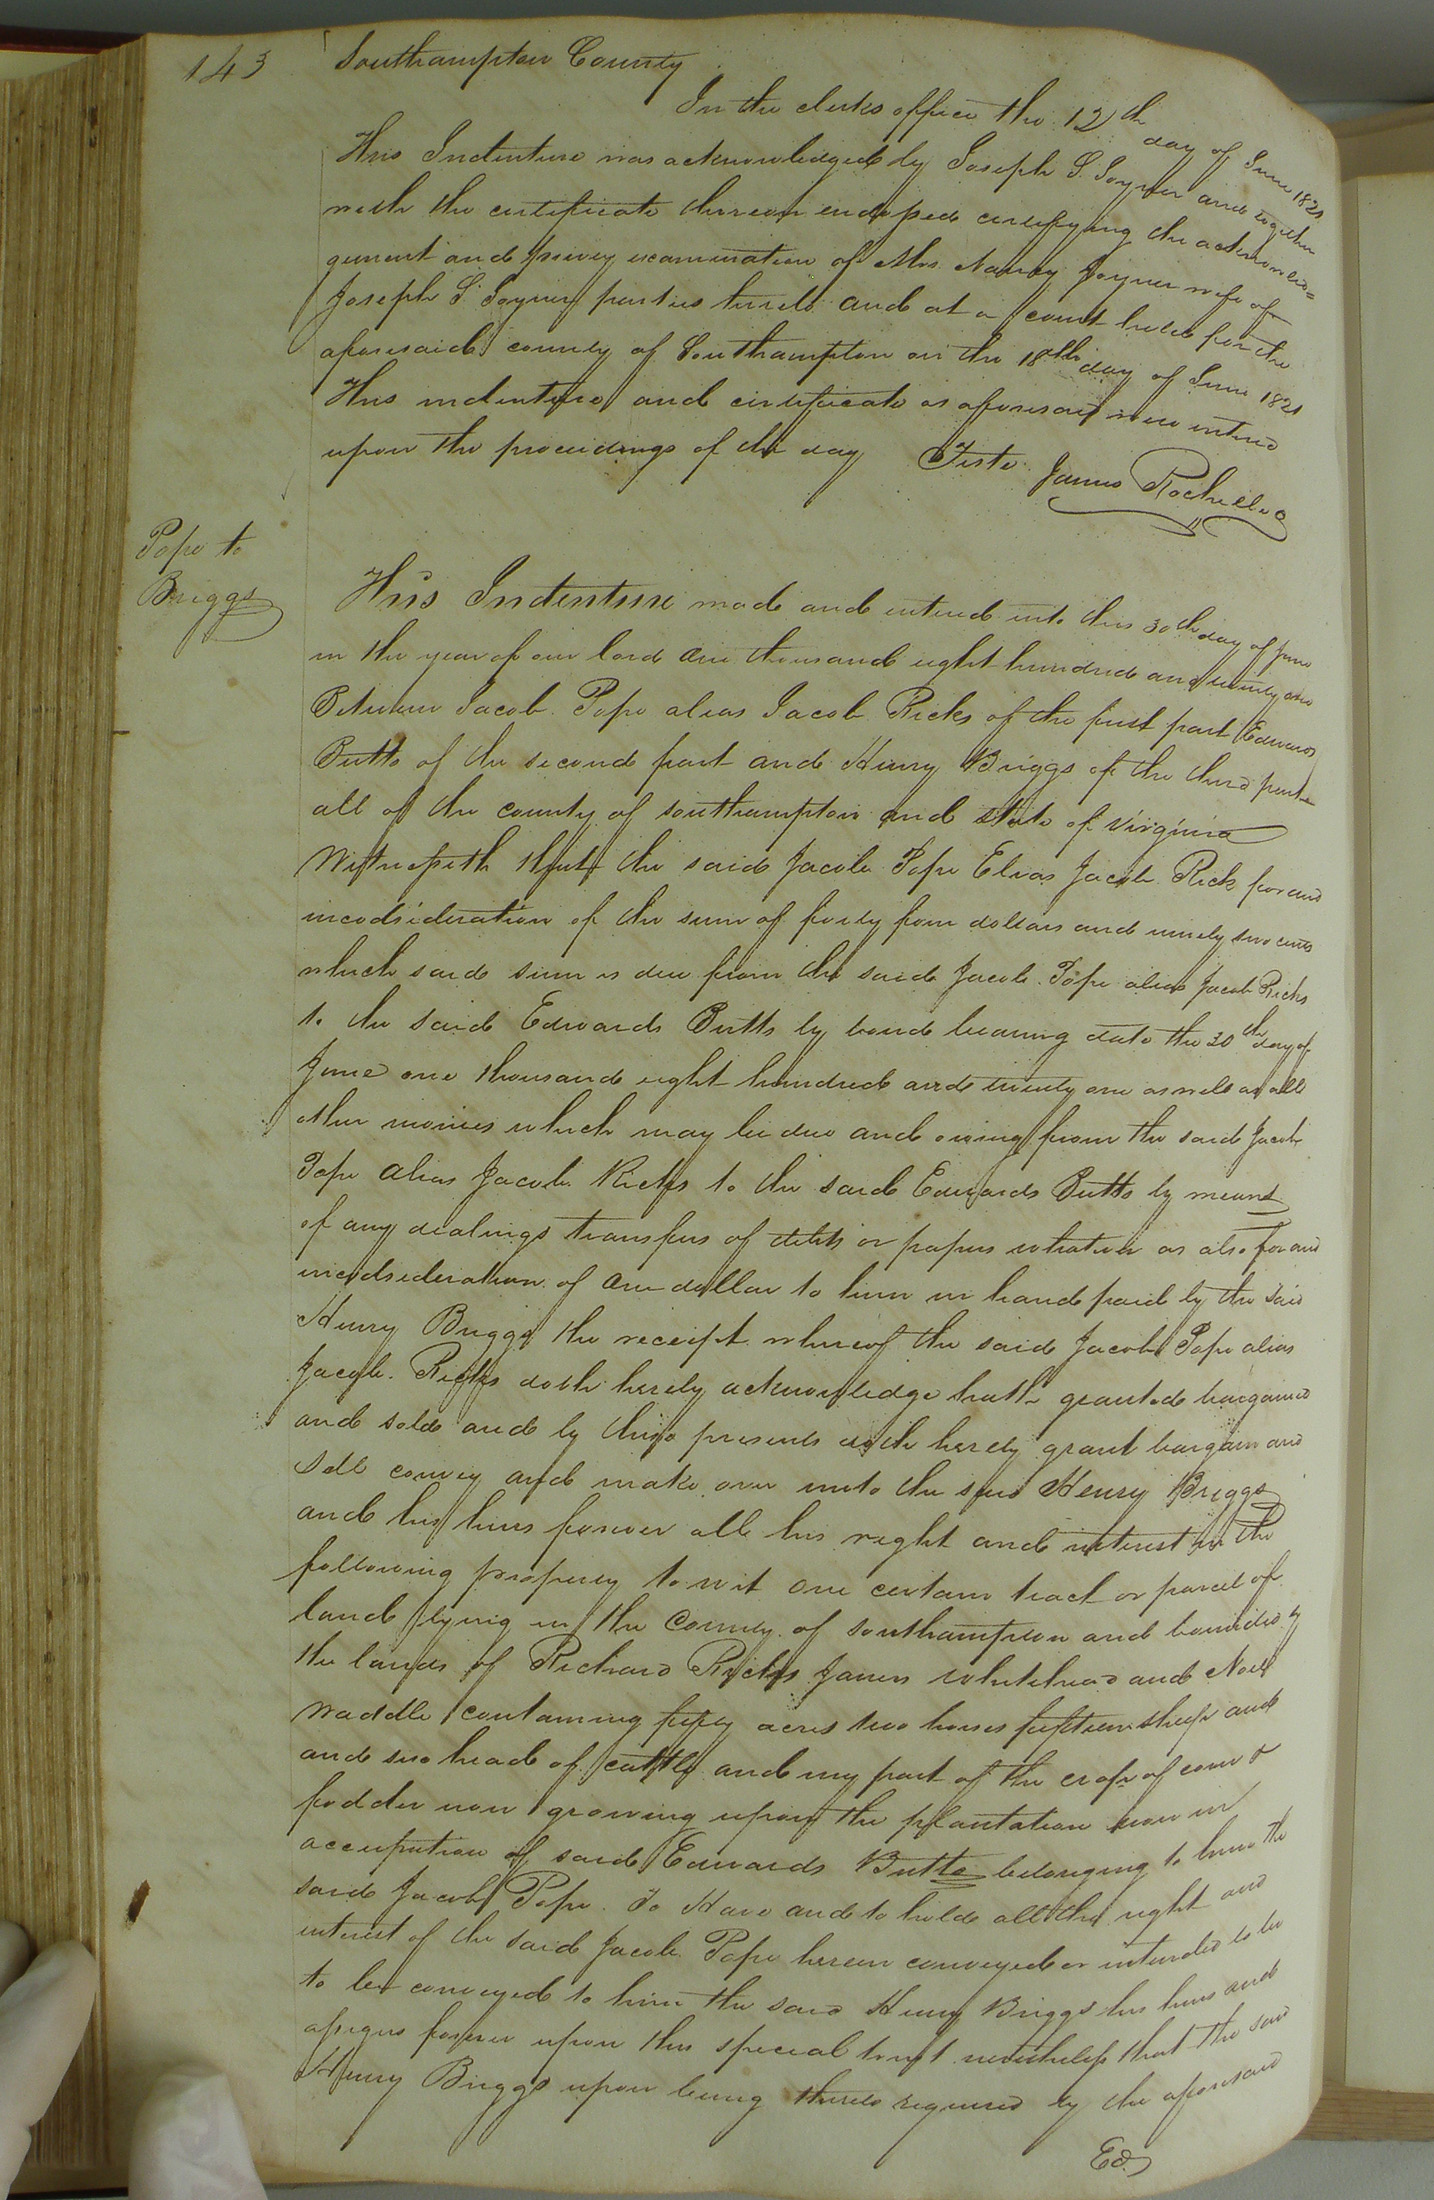 143
Southampton County
In the clerks office the 12th day of June 1821
This Indenture was acknowledged by Joseph S. Joyner and together
with the certificate thereon endorsed certifying the acknowled=
gement and privey examination of Mrs Nancy Joyner wife of
Joseph S. Joyner parties hereto and at a court held for the
aforesaid county of Southampton on the 18th day of June 1821
This indenture and certificate as aforesaid were entered
upon the proceedings of the day Teste James Rochelle
Pope to
Briggs
This Indenture made and entered into this 30th day of June
in the year of our lord one thousand eight hundred and twenty one
Between Jacob Pope alias Jacob Ricks of the first part Edwards
Butts of the second part and Henry Briggs of the third part
all of the county of southampton and state of Virginia
Witnesseth that the said Jacob Pope Elias Jacob Rick for and
incodsideration of the sum of forty four dollars and ninety two cents
which said sum is due from the said Jacob Pope alias Jacob Ricks
to the said Edwards Butts by bond bearing date the 30th day of
June one thousand eight hundred and twenty one as well as all
other monies which may be due and owing from the said Jacob
Pope alias Jacob Ricks to the said Edwards Butts by means
of any dealings transfers of debts or papers whatever as also for and
incodsideration of one dollar to him in hand paid by the said
Henry Briggs the receipt whereof the said Jacob Pope alias
Jacob Ricks doth hereby acknowledge hath granted bargained
and sold and by these presents doth hereby grant bargain and
sell convey and make over unto the said Henry Briggs
and his heirs forever all his right and interest in the
following property to wit one certain tract or parcel of
land lying in the County of southampton and bounded by
the lands of Richard Ricks James whitehead and Noel
Waddle containing fifty acres two horses fifteen sheep and
and two head of cattle and my part of the crop of corn &
fodder now growing upon the plantation now in
occupation of said Edwards Butts belonging to him the
said Jacob Pope. To Have and to hold all the right and
interest of the said Jacob Pope herein conveyed or intended to be
to be conveyed to him the said Henry Briggs his heirs and
assigns forever upon this special trust nevertheless that the said
Henry Briggs upon being thereto required by the aforesaid
Ed.